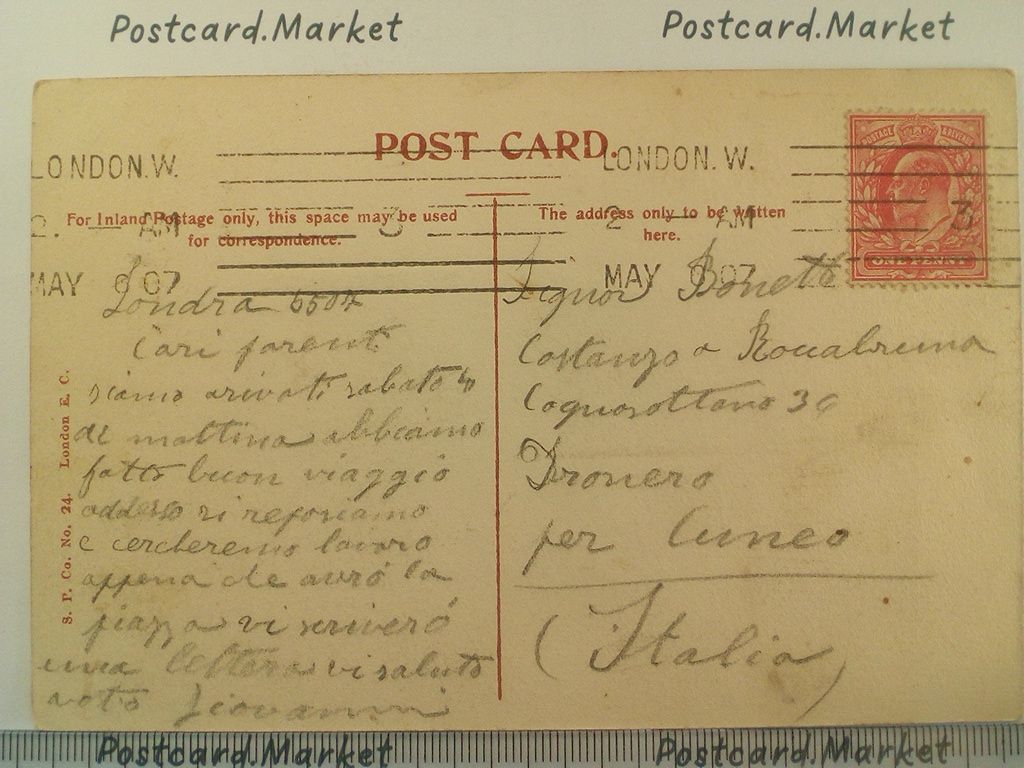 Postcard.Market Postcard.Market
POST CARD.
LONDON.W. LONDON.W.
2. AM 3 2 AM 3
MAY 6 07 MAY 6 07
POSTAGE & REVENUE
ONE PENNY
For Inland Postage only, this space may be used
for correspondence.
The address only to be written
here.
Londra 6507
Cari parenti
siamo arivati sabato 4
di mattina abbiamo
fatto buon viaggio
addesso si reposiamo
e cercheremo lavoro
appena che avró la
piazza vi scriveró
una lettera vi saluto
Giovanni
Signor Bonetto
Costanzo a Rocabruna
30
Dronero
per Cuneo
(Italia)
S. P. Co. No. 24. London E. C.
Postcard.Market Postcard.Market